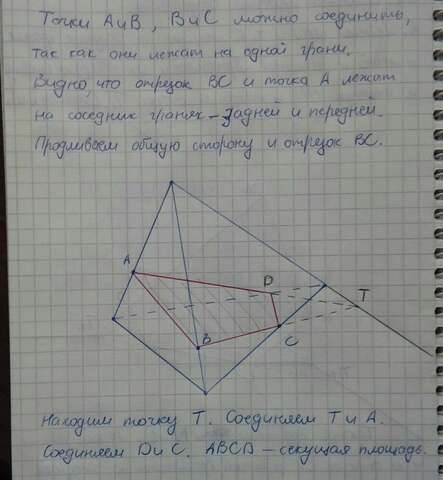 Точки А и В, В и С можно соединить,
так как они лежат на одной грани.
Видно, что отрезок ВС и точка А лежат
на соседних гранях - задней и передней.
Продливаем общую сторону и отрезок ВС.
A
D
T
B
C
Находим точку Т. Соединяем Т и А.
Соединяем D и С. ABCD - секущая площадь.